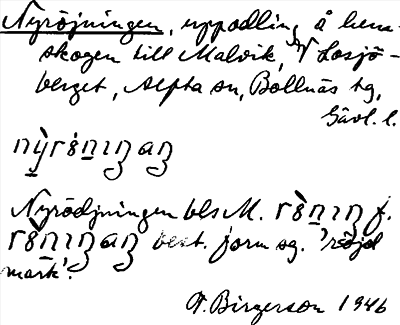 Nyröjningen, uppodling å hem-
skogen till Malvik, V Losjö-
berget, Alfta sn, Bollnäs tg,
Gävl. l.
Nyrödjningen bls M. f.
best. form sg. 'röjd
mark'.
F. Birgerson 1946